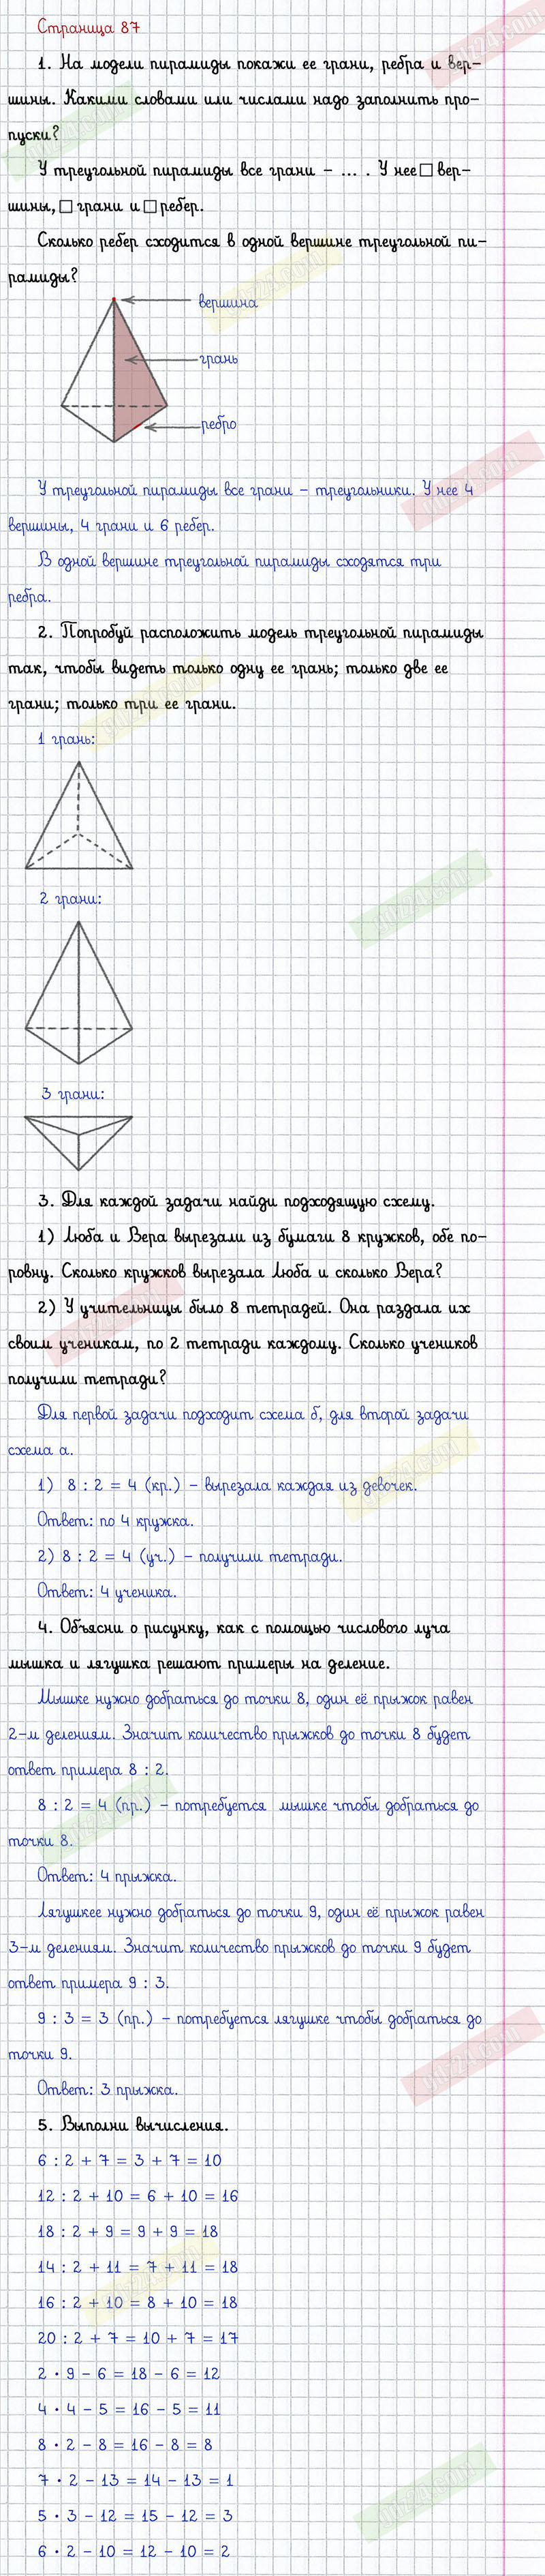 Страница 87
1. На модели пирамиды покажи ее грани, ребра и вер-
шины. Какими словами или числами надо заполнить про-
пуски?
У треугольной пирамиды все грани – ... . У нее □ вер-
шины, □ грани и □ ребер.
Сколько ребер сходится в одной вершине треугольной пи-
рамиды?
вершина
грань
ребро
У треугольной пирамиды все грани – треугольники. У нее 4
вершины, 4 грани и 6 ребер.
В одной вершине треугольной пирамиды сходятся три
ребра.
2. Попробуй расположить модель треугольной пирамиды
так, чтобы видеть только одну ее грань; только две ее
грани; только три ее грани.
1 грань:
2 грани:
3 грани:
3. Для каждой задачи найди подходящую схему.
1) Люба и Вера вырезали из бумаги 8 кружков, обе по-
ровну. Сколько кружков вырезала Люба и сколько Вера?
2) У учительницы было 8 тетрадей. Она раздала их
своим ученикам, по 2 тетради каждому. Сколько учеников
получили тетради?
Для первой задачи подходит схема б, для второй задачи
схема а.
1) 8 : 2 = 4 (кр.) – вырезала каждая из девочек.
Ответ: по 4 кружка.
2) 8 : 2 = 4 (уч.) – получили тетради.
Ответ: 4 ученика.
4. Объясни о рисунку, как с помощью числового луча
мышка и лягушка решают примеры на деление.
Мышке нужно добраться до точки 8, один её прыжок равен
2-м делениям. Значит количество прыжков до точки 8 будет
ответ примера 8 : 2.
8 : 2 = 4 (пр.) – потребуется мышке чтобы добраться до
точки 8.
Ответ: 4 прыжка.
Лягушкее нужно добраться до точки 9, один её прыжок равен
3-м делениям. Значит количество прыжков до точки 9 будет
ответ примера 9 : 3.
9 : 3 = 3 (пр.) – потребуется лягушке чтобы добраться до
точки 9.
Ответ: 3 прыжка.
5. Выполни вычисления.
6 : 2 + 7 = 3 + 7 = 10
12 : 2 + 10 = 6 + 10 = 16
18 : 2 + 9 = 9 + 9 = 18
14 : 2 + 11 = 7 + 11 = 18
16 : 2 + 10 = 8 + 10 = 18
20 : 2 + 7 = 10 + 7 = 17
2 · 9 – 6 = 18 – 6 = 12
4 · 4 – 5 = 16 – 5 = 11
8 · 2 – 8 = 16 – 8 = 8
7 · 2 – 13 = 14 – 13 = 1
5 · 3 – 12 = 15 – 12 = 3
6 · 2 – 10 = 12 – 10 = 2